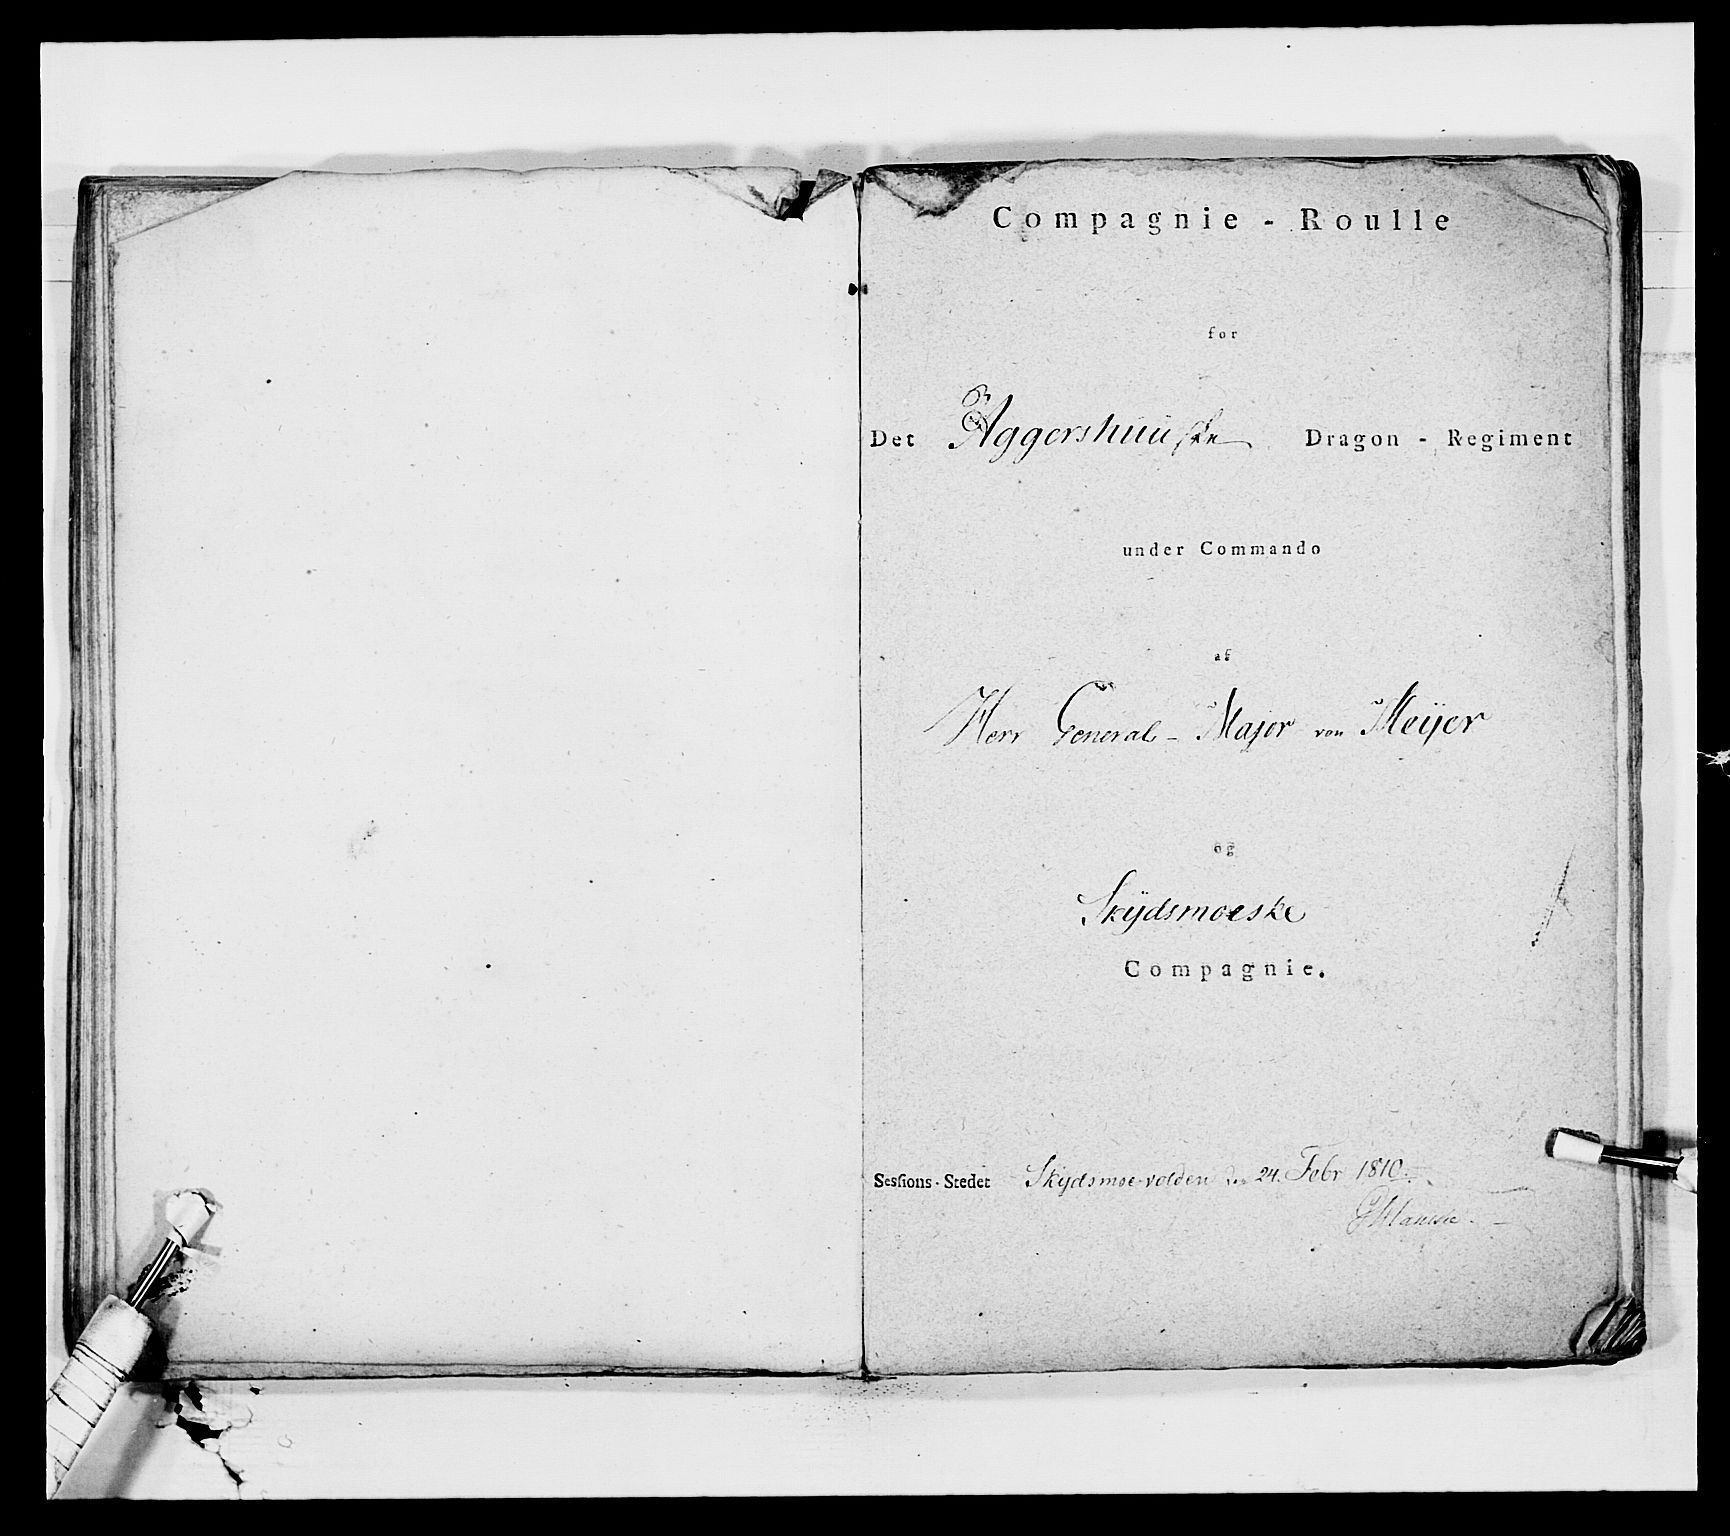 Compagnie - Roulle
for
Det Aggershuuske Dragon - Regiment
under Commando
af
Herr General - Major von Meÿer
og
Skÿdsmoeske
Compagnie.
Sessions-Stedet Skydsmoe-volden den 24. Febr 1810.